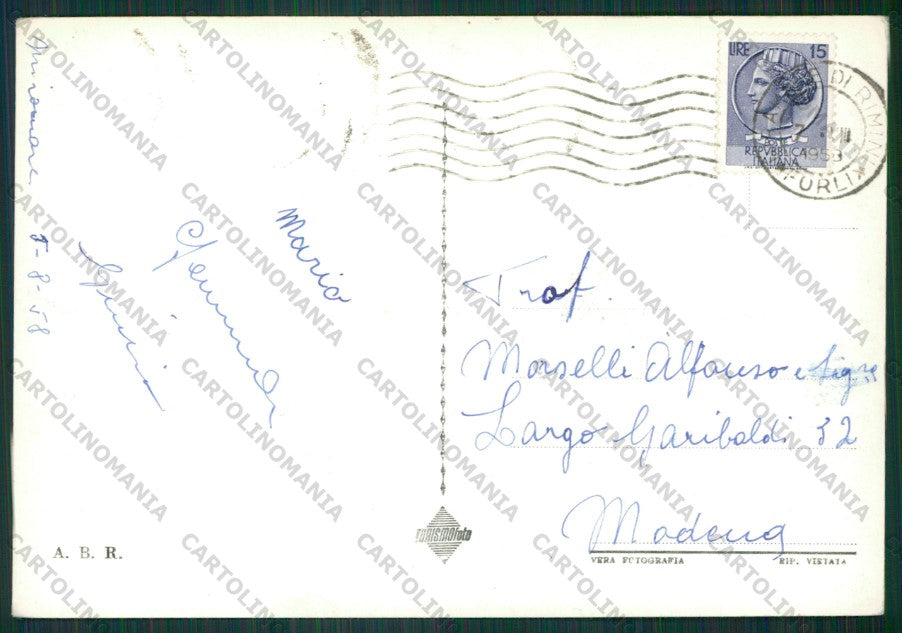 Miramare, 5-8-58
Maria
Gemma
LIRE 15
POSTE
REPVBBLICA
ITALIANA
DI RIMINI
1958
FORLI
Prof.
Morselli Alfonso e Sig.ra
Largo Garibaldi 32
Modena
A. B. R.
TURISMOfoto
VERA FOTOGRAFIA
RIP. VIETATA
CARTOLINOMANIA